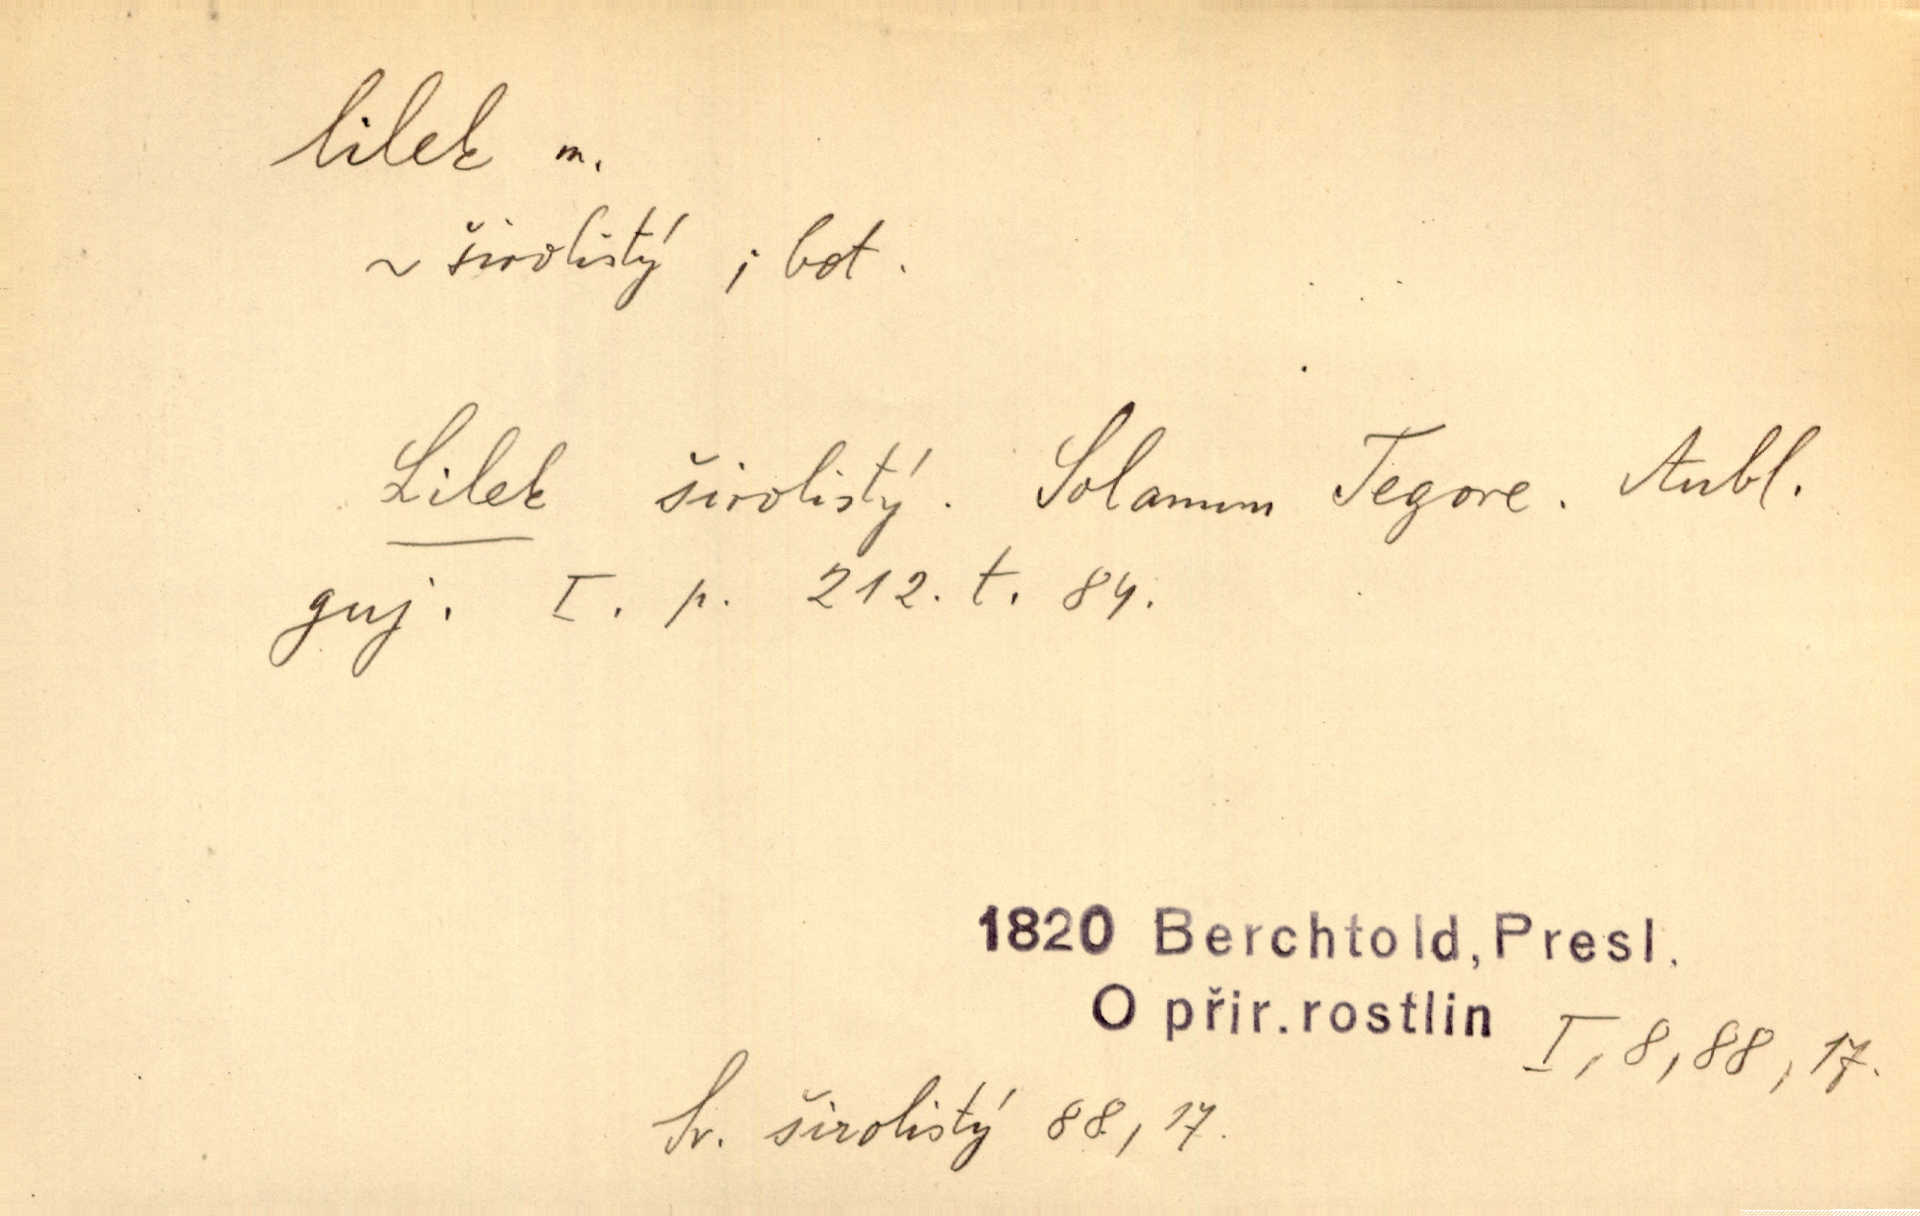 lilek m.
~ širolistý ; bot.
Lilek širolistý. Solanum Tegore. Aubl.
guj. I. p. 212. t. 84.
1820 Berchtold, Presl.
O přir. rostlin I, 8, 88, 17.
Sr. širolistý 88, 17.